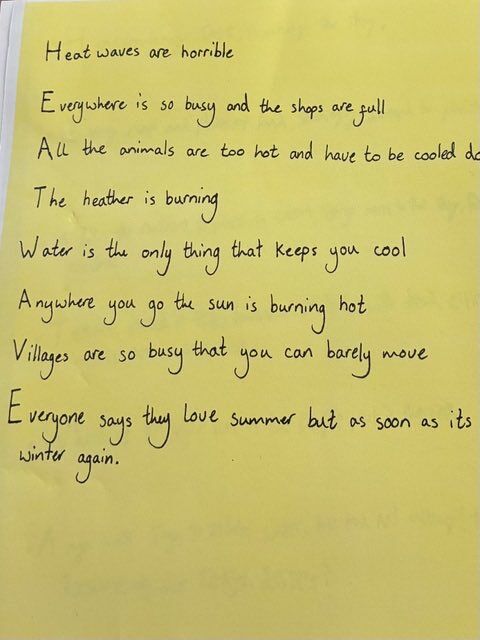 Heat waves are horrible
Everywhere is so busy and the shops are full
All the animals are too hot and have to be cooled
The heather is burning
Water is the only thing that keeps you cool
Anywhere you go the sun is burning hot
Villages are so busy that you can barely move
Everyone says they love summer but as soon as its
winter again.